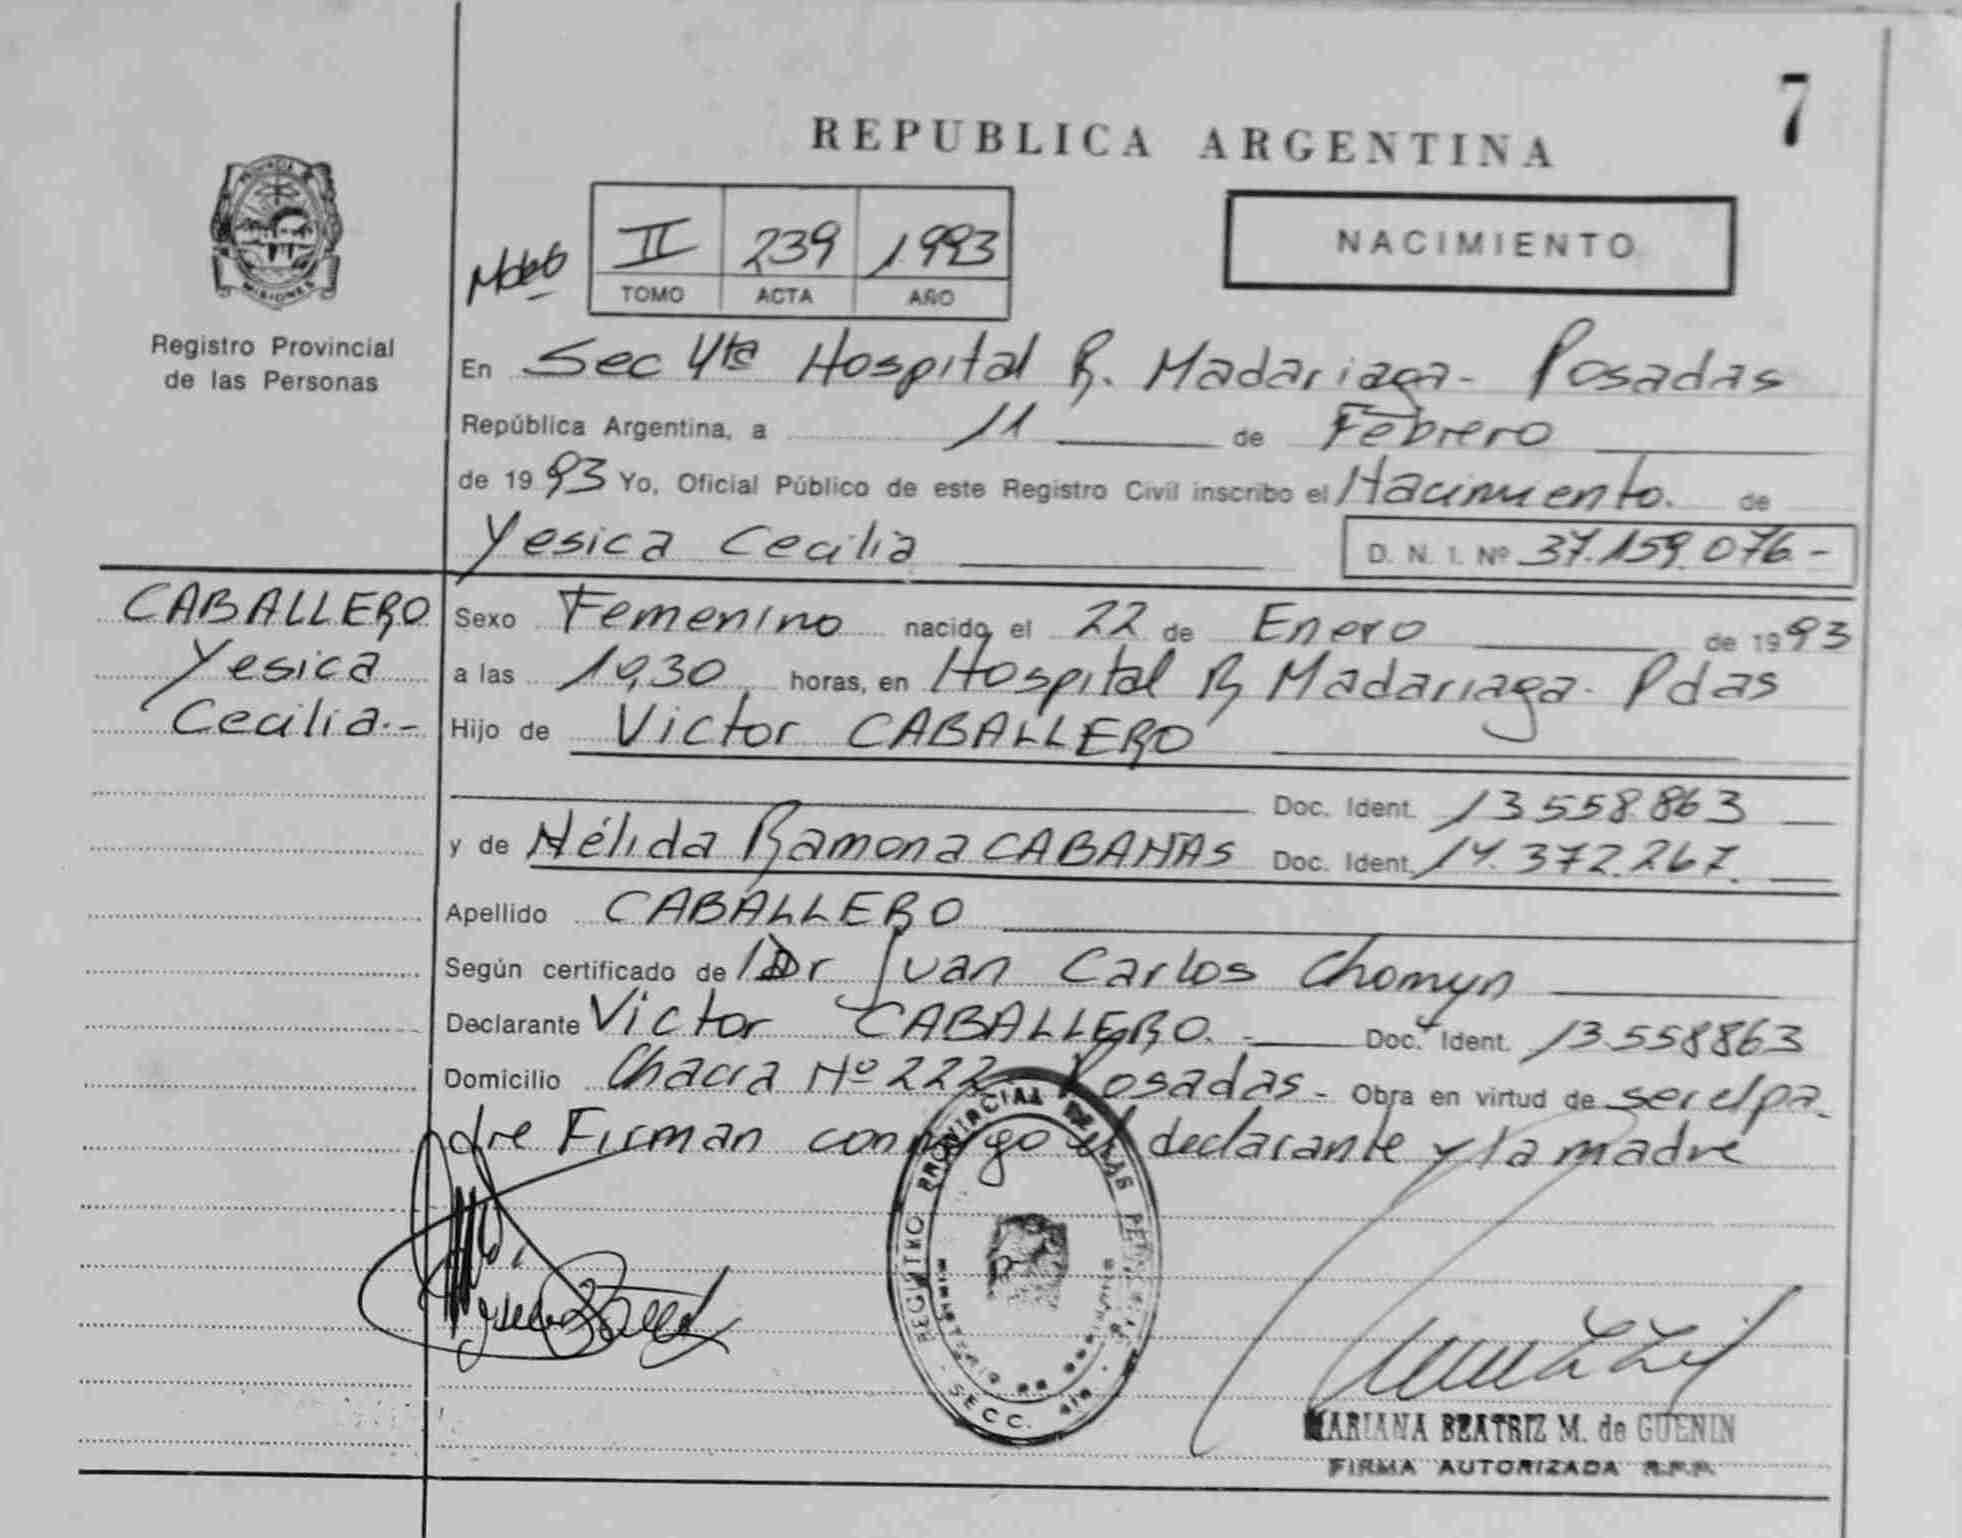 7
REPUBLICA ARGENTINA
PROVINCIA
MISIONES
Registro Provincial
de las Personas
II 239 1993
TOMO ACTA AÑO
NACIMIENTO
En Sec 4ta Hospital R. Madariaga- Posadas
República Argentina, a 11 de Febrero
de 1993 Yo, Oficial Público de este Registro Civil inscribo el Nacimiento. de
Yesica Cecilia D. N. I. Nº 37.159.076.-
CABALLERO
Yesica
Cecilia.-
Sexo Femenino nacido el 22 de Enero de 1993
a las 19,30 horas, en Hospital R Madariaga- Pdas
Hijo de Victor CABALLERO
Doc. Ident. 13.558.863
y de Nélida Ramona CABAÑAS Doc. Ident. 14.372.267.
Apellido CABALLERO
Según certificado de Dr Juan Carlos Chomyn
Declarante Victor CABALLERO.- Doc. Ident. 13.558863
Domicilio Chacra Nº 222 Posadas- Obra en virtud de ser el pa-
dre Firman conmigo el declarante y la madre
REGISTRO PROVINCIAL DE LAS
MINISTERIO DE GOBIERNO
SECC. 4ta
MARIANA BEATRIZ M. de GUENIN
FIRMA AUTORIZADA R.P.P.